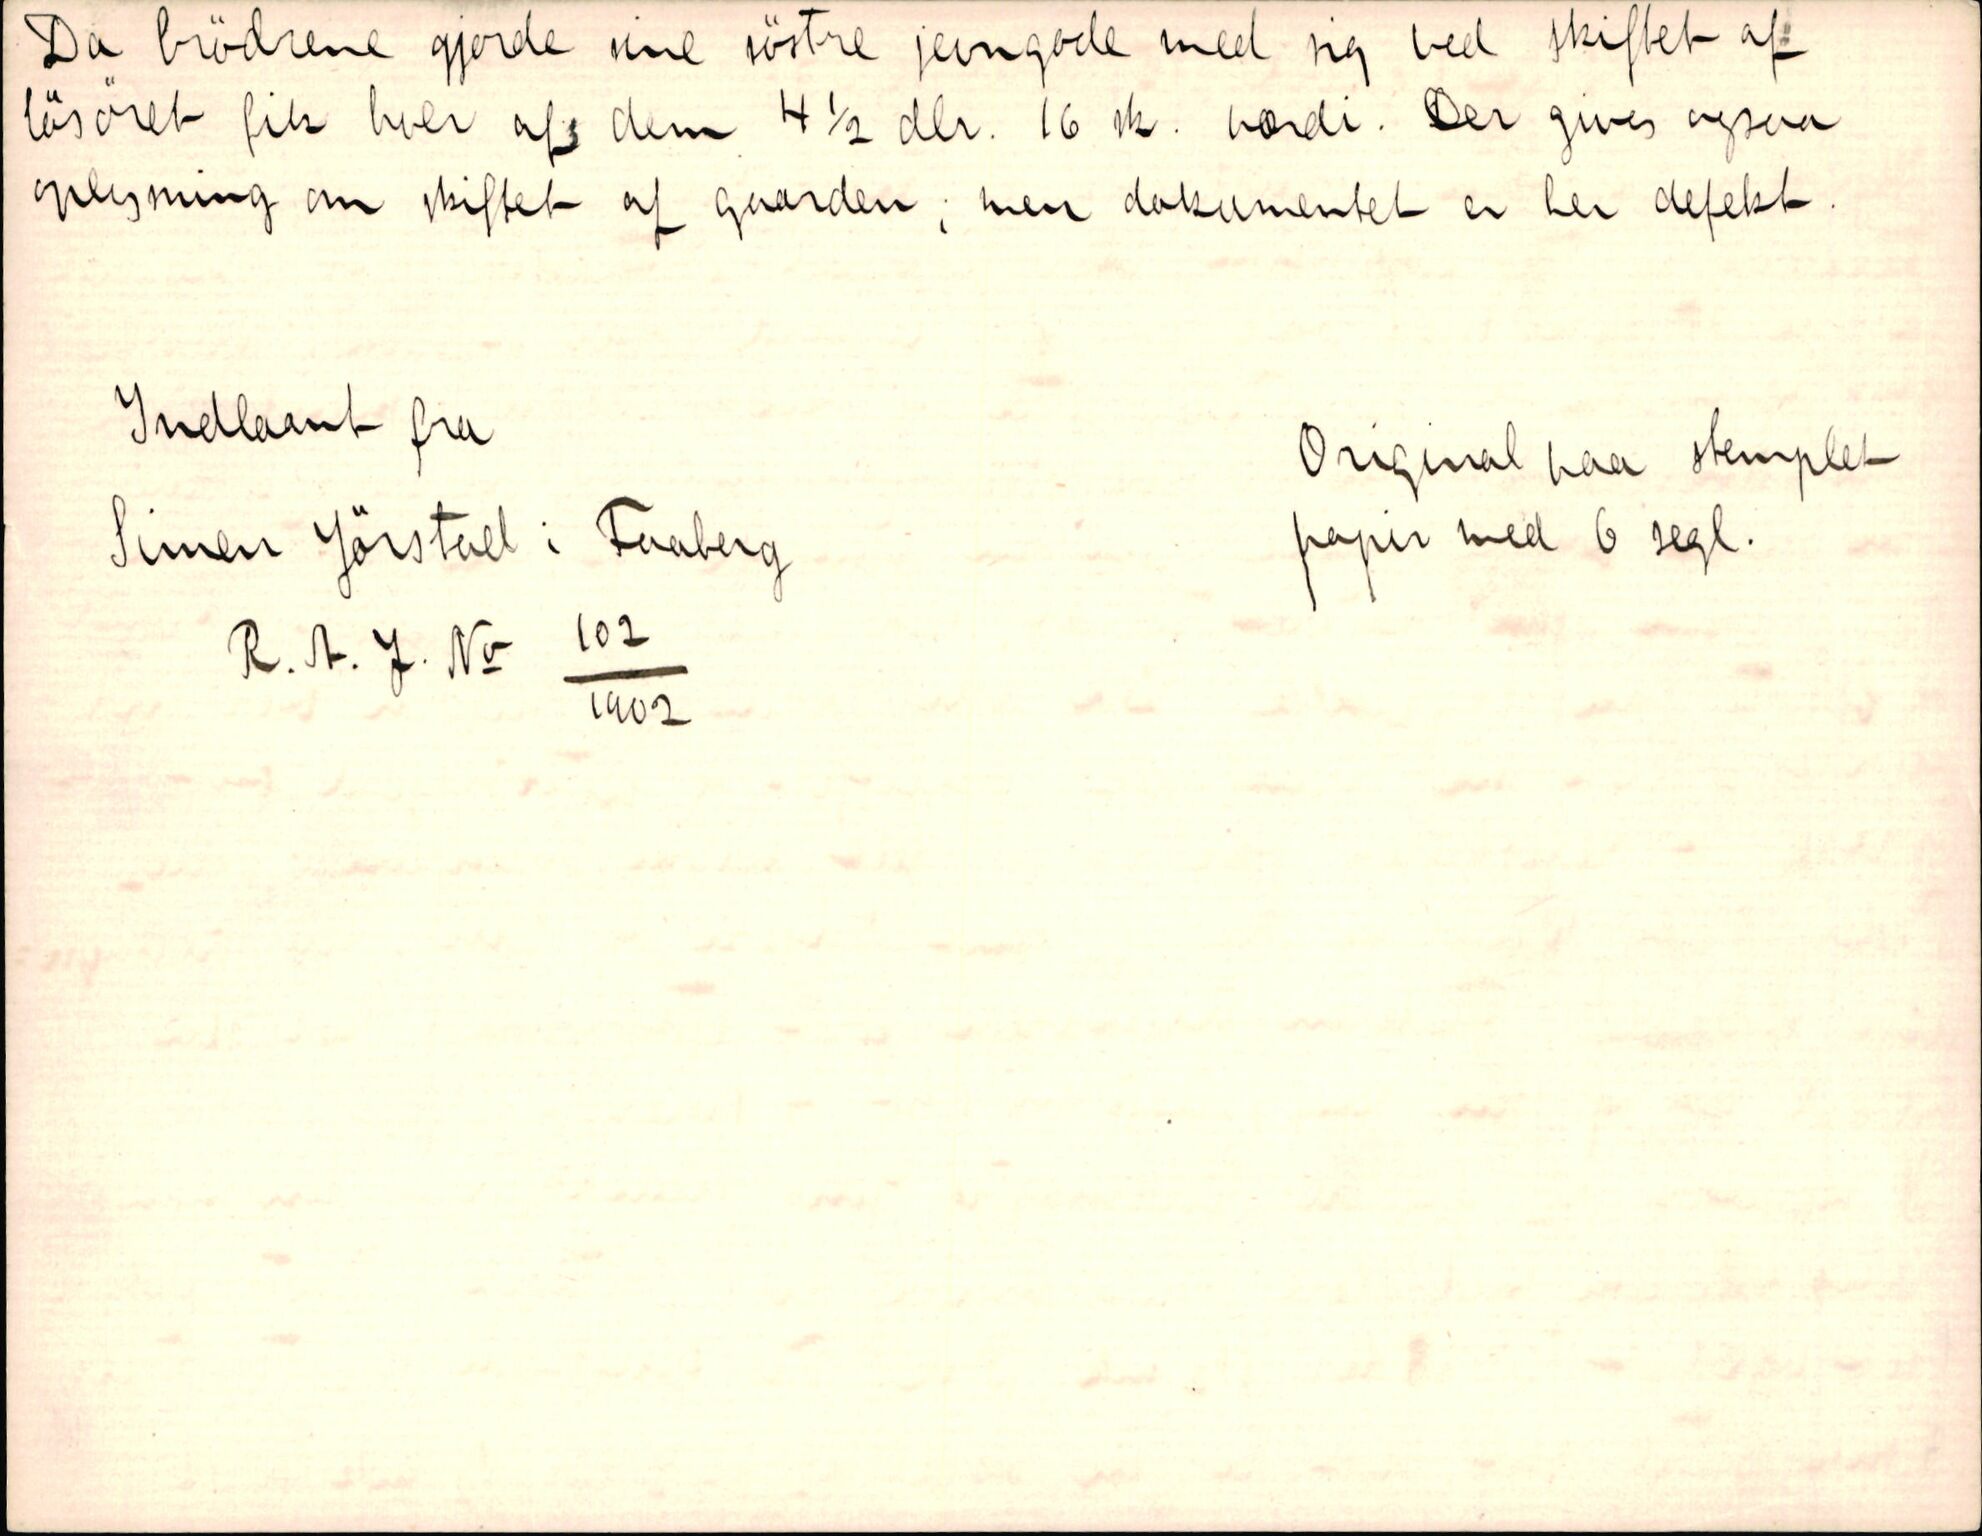 Da brödrene gjorde sine söstre jevngode med sig ved skiftet af
lösöret fik hver af dem 4 ½ dlr. 16 sk. værdi. Der gives ogsaa
oplysning om skiftet af gaarden; men dokumentet er her defekt.
Indlaant fra
Simen Jörstad i Faaberg
R. A. J. No 102/1902
Original paa stemplet
papir med 6 segl.